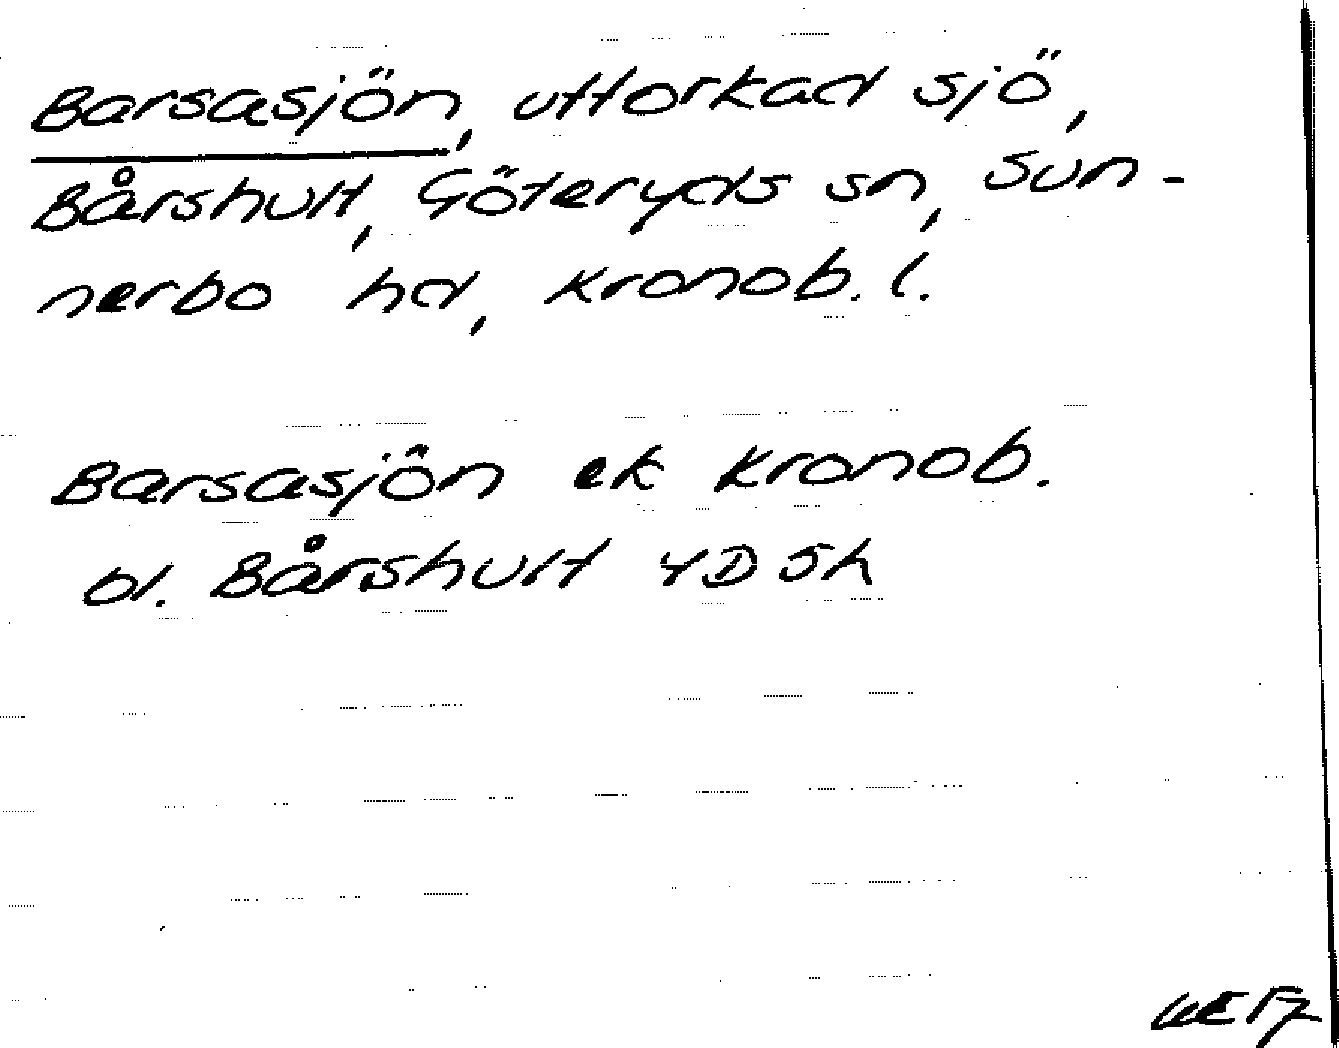 Barsasjön, uttorkad sjö,
Bårshult, Göteryds sn, Sun-
nerbo hd, Kronob. l.
Barsasjön ek Kronob.
bl. Bårshult 4D 5h